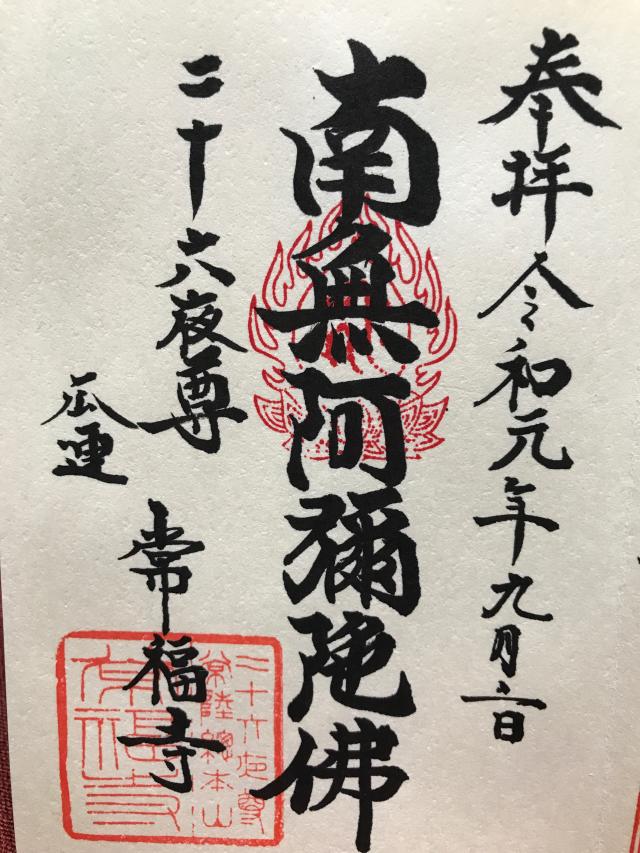 奉拝 令和元年九月二日
南無阿彌陀佛
二十六夜尊
瓜連
常福寺
二十六夜尊
常陸總本山
常福寺